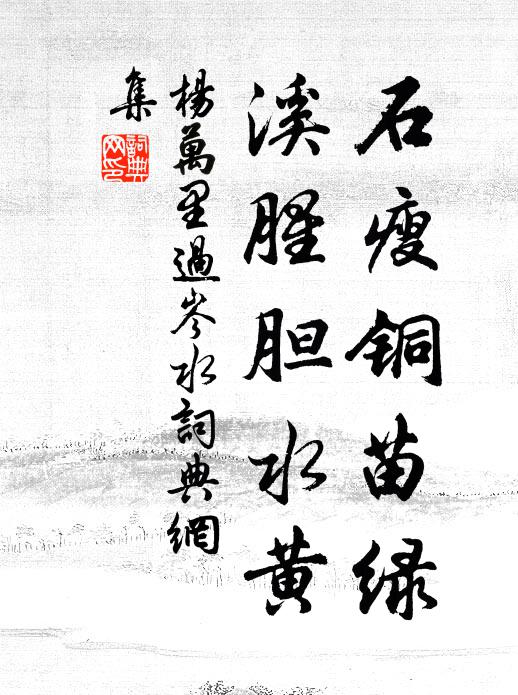 石瘦铜苗绿
溪腥胆水黄
楊萬里過岑水詞典網
集
詞典
网印